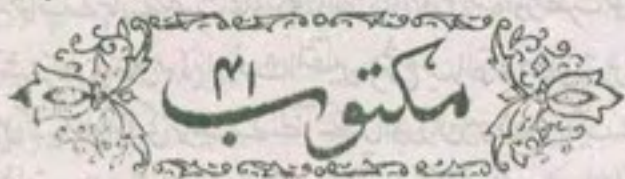 مکتوب ۴۱